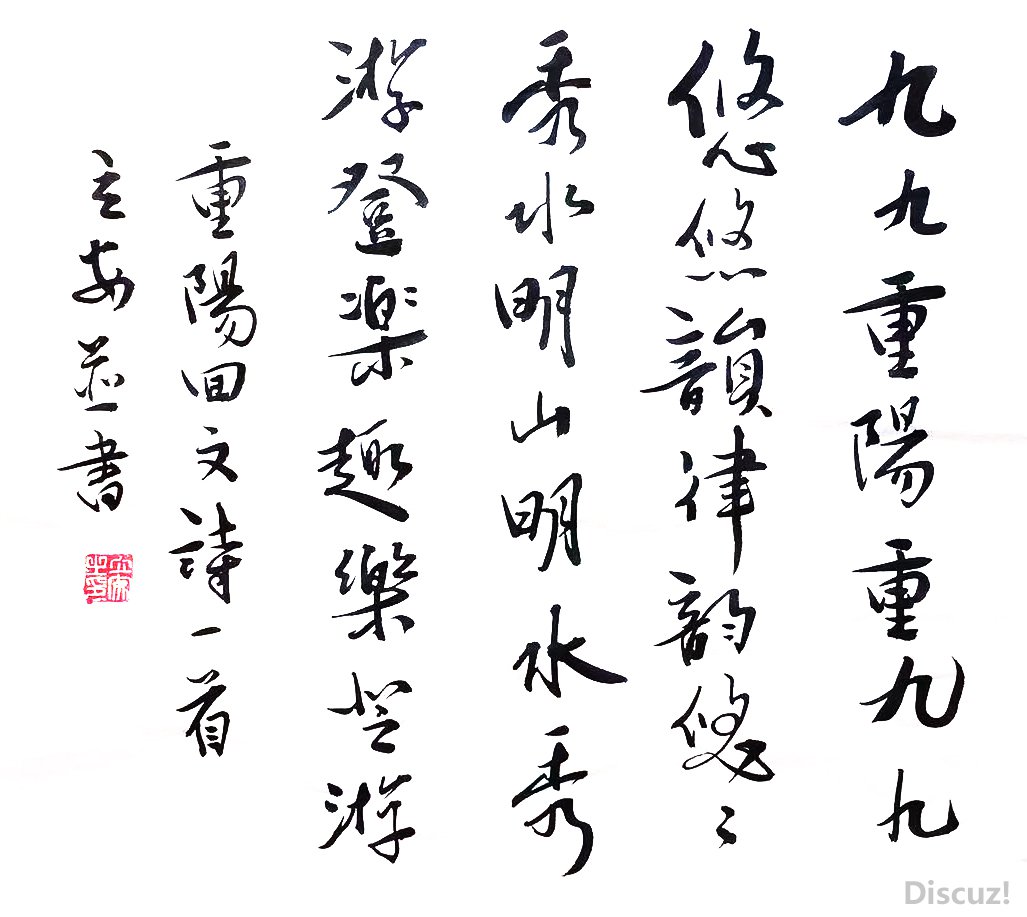 九九重陽重九九
悠悠韻律韵悠々
秀水明山明水秀
游登樂趣樂登游
重陽回文詩一首
書
Discuz!